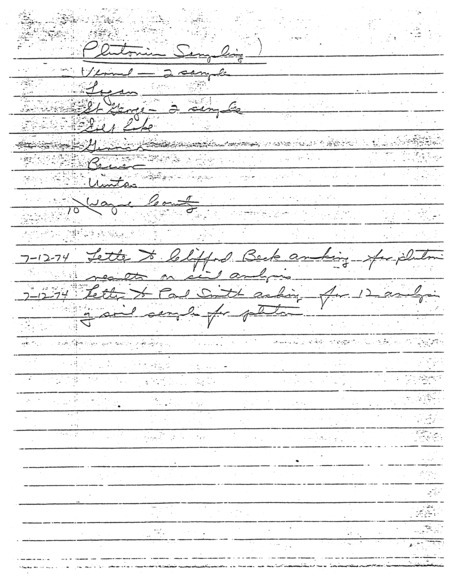 Plutonium Sampling)
Vernal – 2 sample
Logan
St George – 2 sample
Salt Lake
Beaver
Uintas
10 Wayne County
7-12-74 Letter to Clifford Beck asking for pluton
results on soil analysis
7-12-74 Letter to Paul Smith asking for 12 analysis
of soil sample for pluton